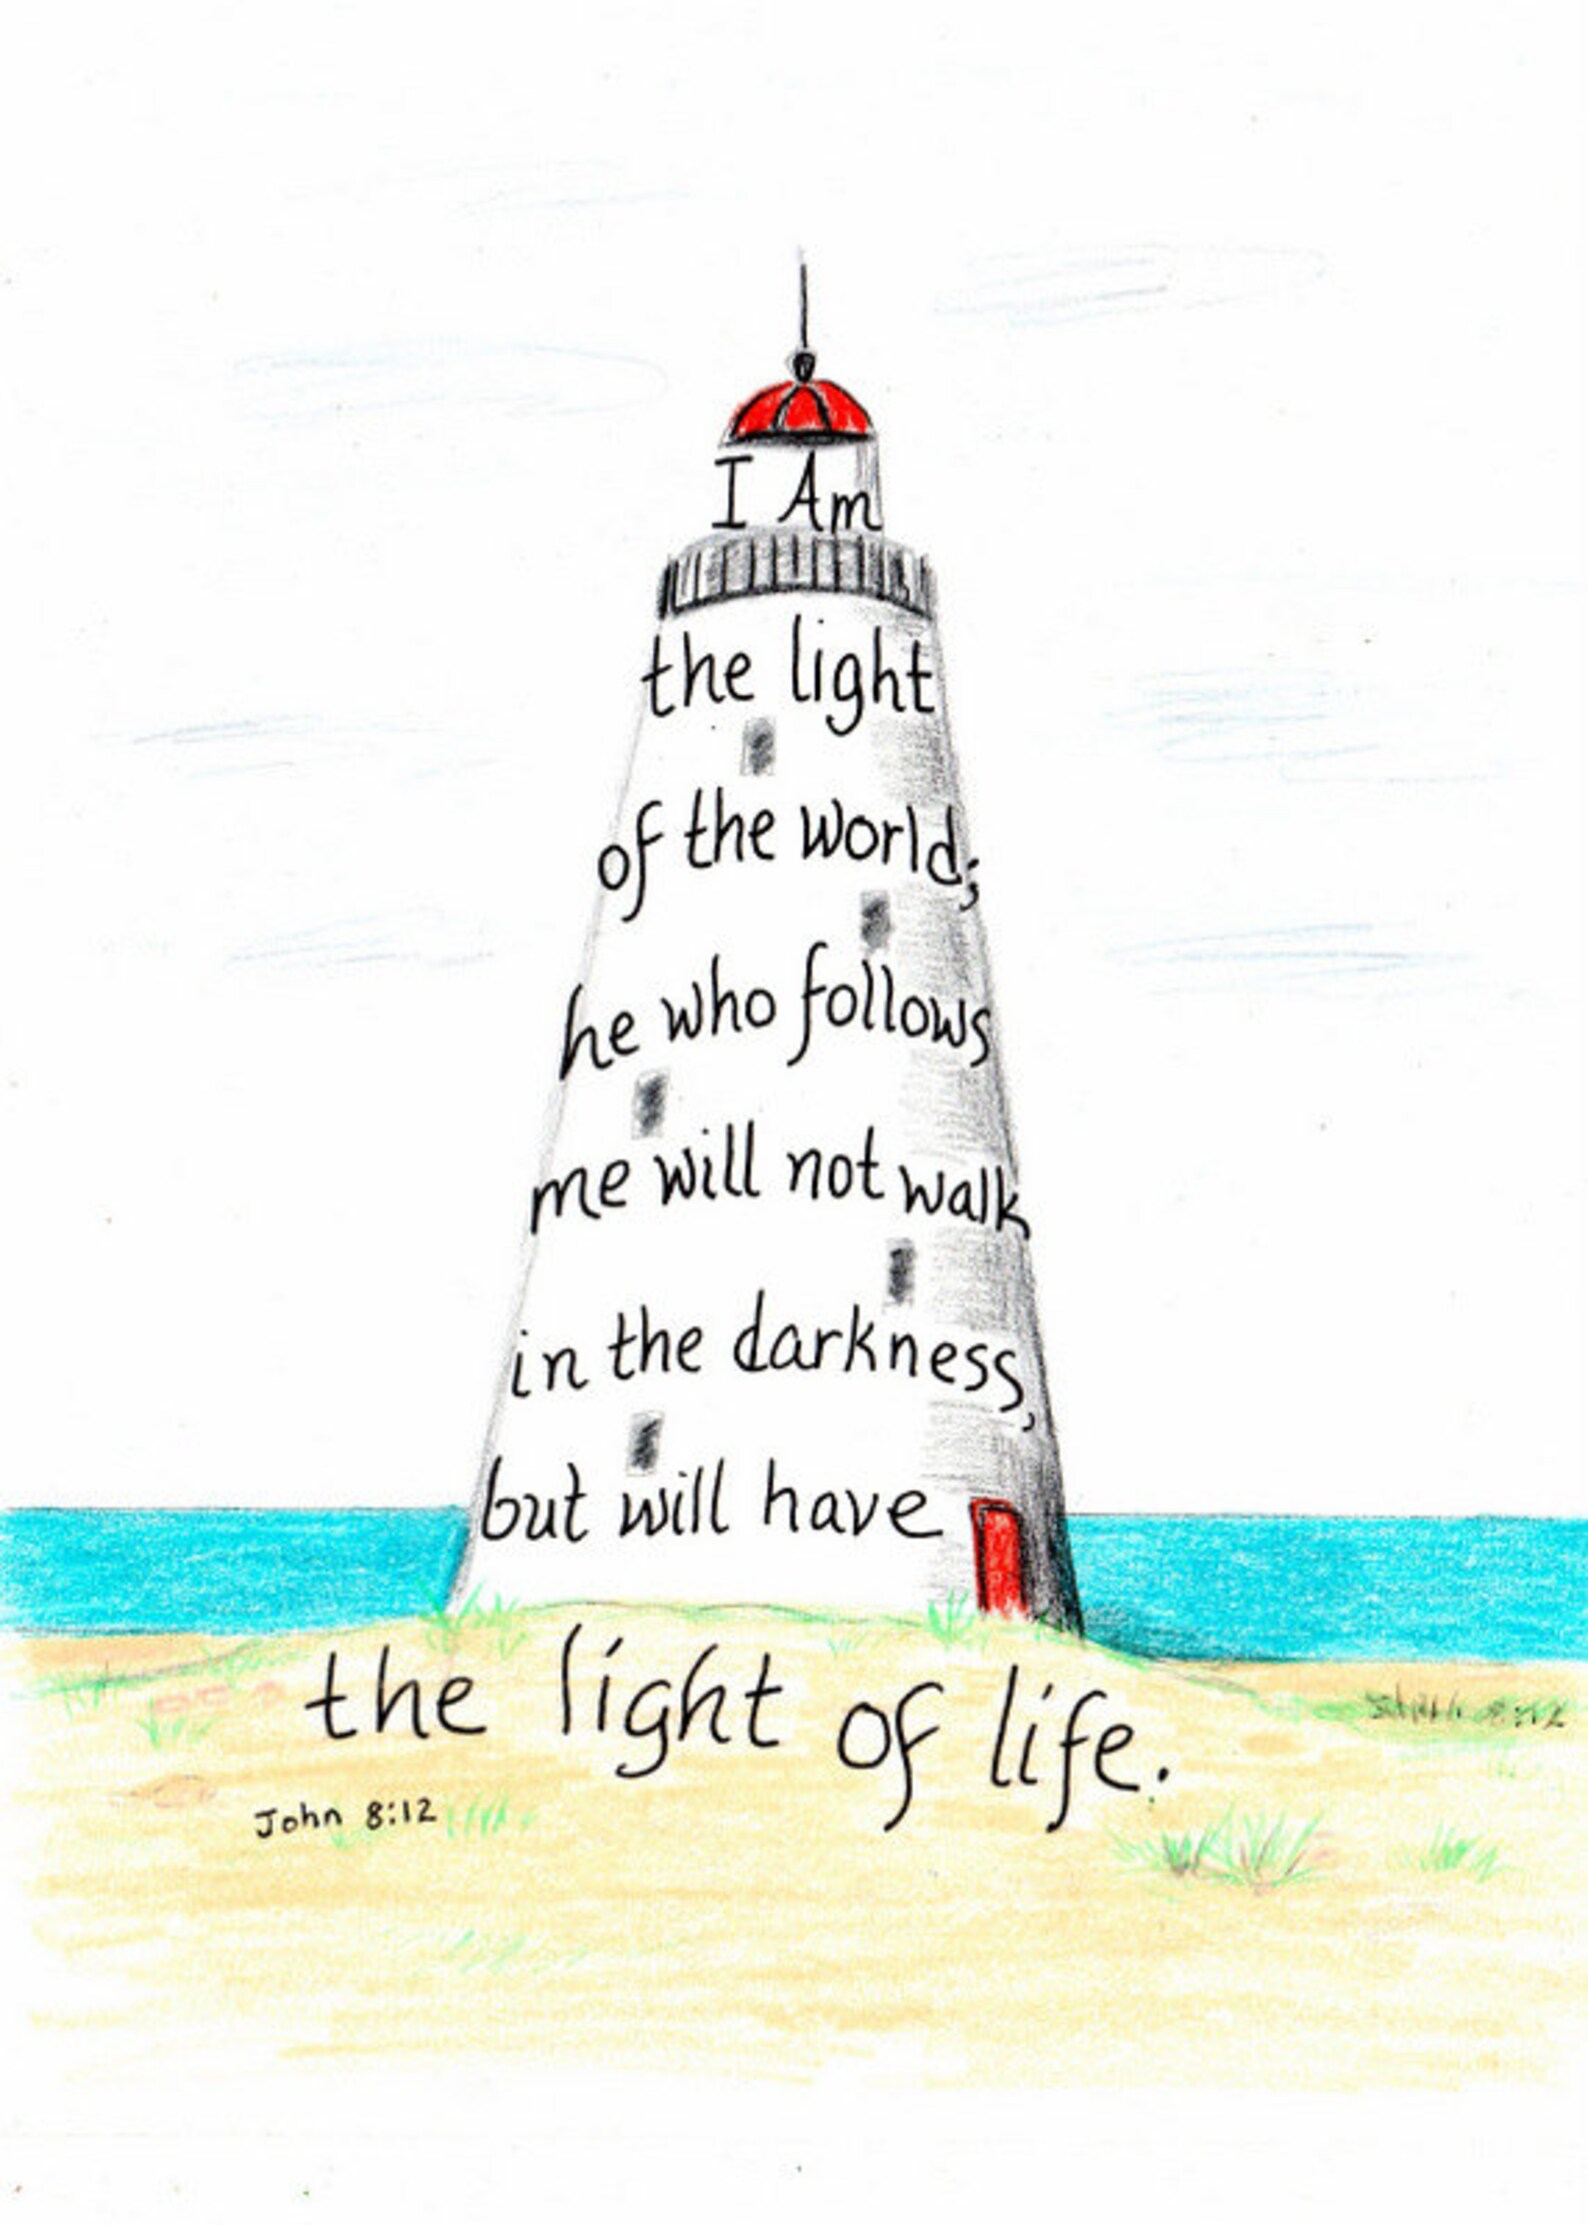 I Am
the light
of the world;
he who follows
me will not walk
in the darkness,
but will have
the light of life.
John 8:12